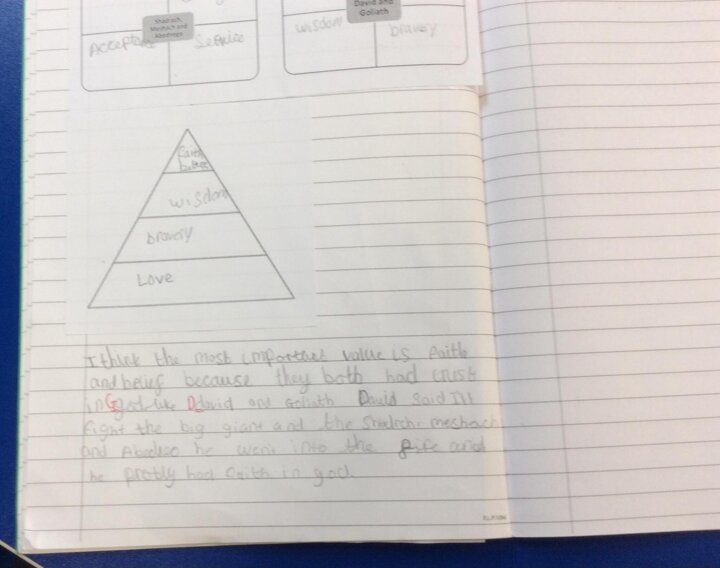 Shadrach,
Meshach and
Abednego
Acceptance
Service
David and
Goliath
wisdom
bravery
faith
belief
wisdom
bravery
Love
I think the most importhet value is faith
and belief because they both had trust
in God like David and Goliath David said I'll
fight the big giant and the Shadrach meshach
and Abednego he went into the fire and
he probly had faith in god.